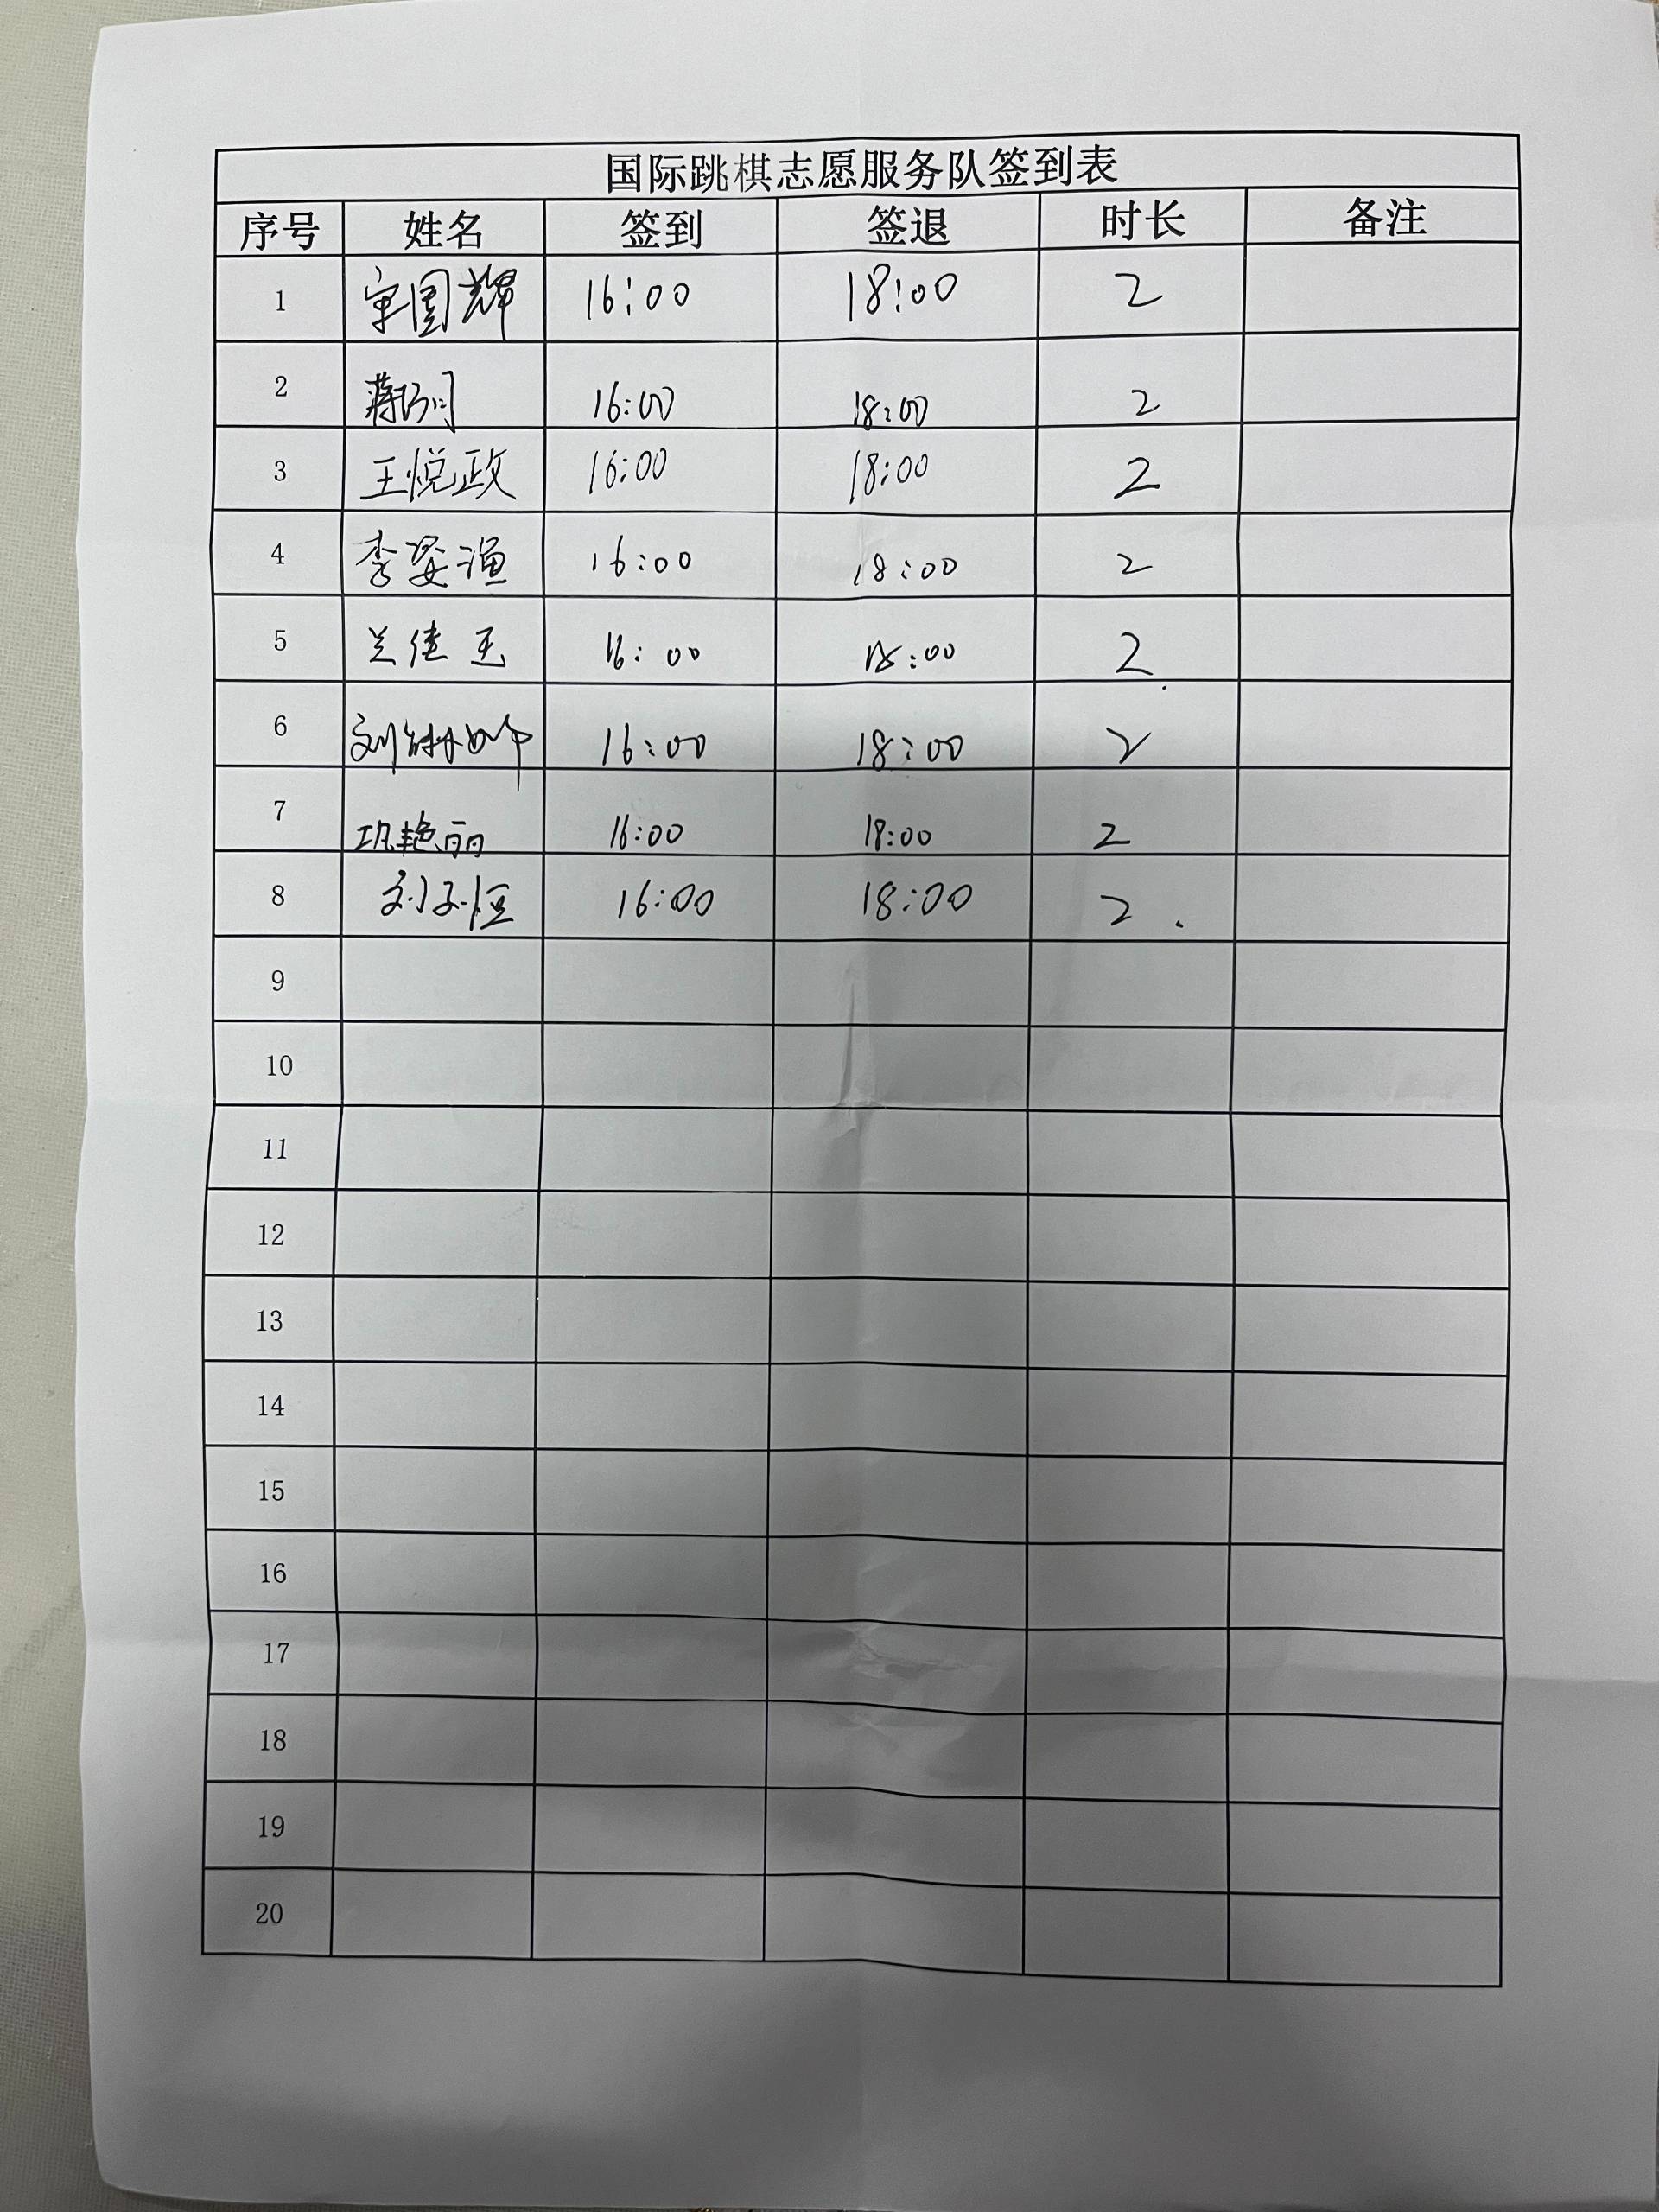 国际跳棋志愿服务队签到表
序号 姓名 签到 签退 时长 备注
1 国辉 16:00 18:00 2
2 蒋 16:00 18:00 2
3 王悦政 16:00 18:00 2
4 李姿渔 16:00 18:00 2
5 兰佳玉 16:00 18:00 2
6 刘 16:00 18:00 2
7 巩艳丽 16:00 18:00 2
8 刘子恒 16:00 18:00 2
9
10
11
12
13
14
15
16
17
18
19
20